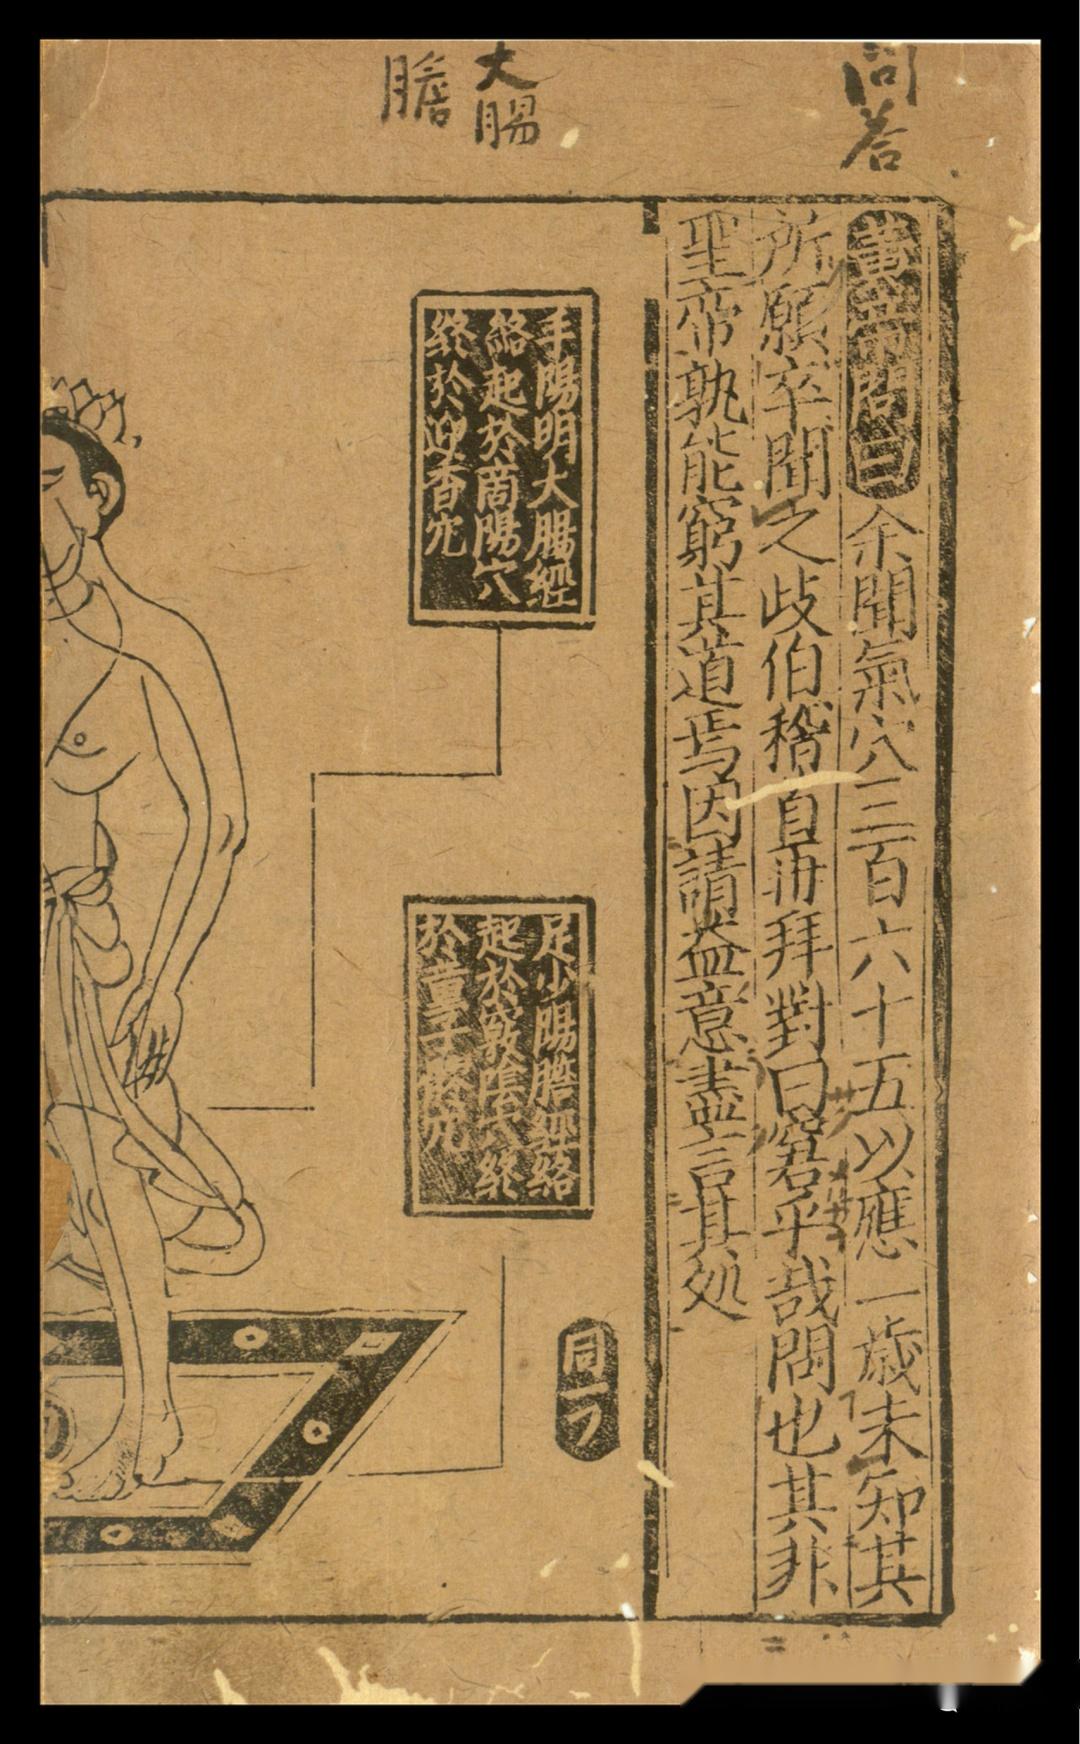 問答
大腸
膽
黃帝問曰余聞氣穴三百六十五以應一歲未知其
所願卒聞之歧伯稽首再拜對曰窘乎哉問也其非
聖帝孰能窮其道焉因請益意盡言其処
手陽明大腸經
絡起於商陽穴
終於迎香穴
足少陽膽經絡
起於竅陰穴終
於童子髎穴
同一